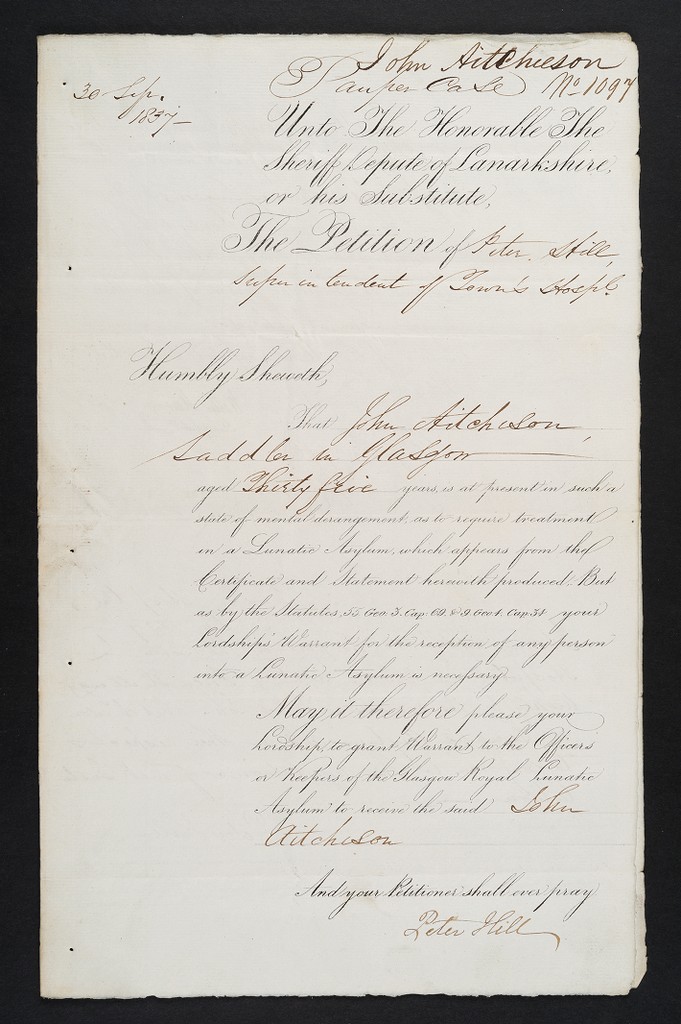 John Aitchieson
Pauper Case No 1097
30 Sep.
1837
Unto The Honorable The
Sheriff Depute of Lanarkshire,
or his Substitute,
The Petition of Peter Hill,
Superintendent of Town's Hospl.
Humbly Sheweth,
That John Aitchieson,
Saddler in Glasgow
aged Thirty five years, is at present in such a
state of mental derangement, as to require treatment
in a Lunatic Asylum, which appears from the
Certificate and Statement herewith produced. But
as by the Statutes, 55 Geo. 3. Cap. 69. & 9. Geo 4. Cap. 34 your
Lordship's Warrant for the reception of any person
into a Lunatic Asylum is necessary
May it therefore please your
Lordship, to grant Warrant, to the Officers
or Keepers, of the Glasgow Royal Lunatic
Asylum to receive the said John
Aitchieson
And your Petitioner shall ever pray
Peter Hill